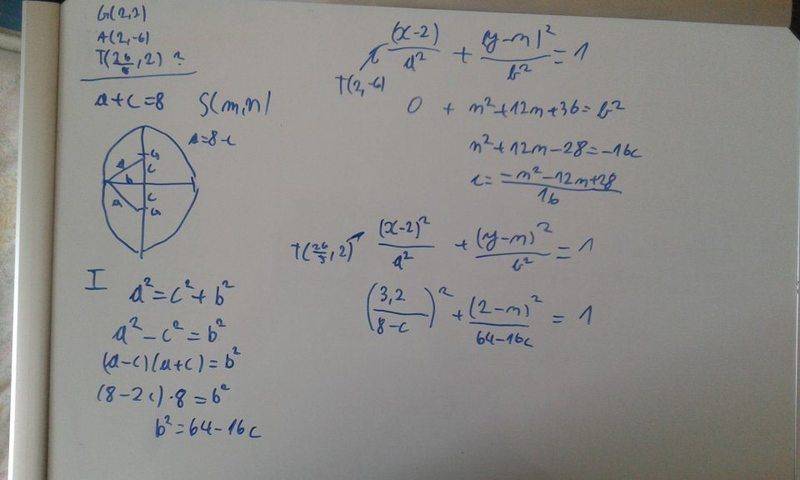 G(2,2)
A(2,-6)
T(26/5, 2) ?
a+c=8 S(m,n)
a=8-c
G
c
a b
c
a G
I a² = c² + b²
a² - c² = b²
(a-c)(a+c) = b²
(8-2c)·8 = b²
b² = 64-16c
(x-2)/a² + (y-n)²/b² = 1
T(2,-6)
0 + n²+12n+36 = b²
n²+12n-28 = -16c
c = (-n²-12n+28)/16
T(26/5, 2) (x-2)²/a² + (y-n)²/b² = 1
(3,2/(8-c))² + (2-n)²/(64-16c) = 1